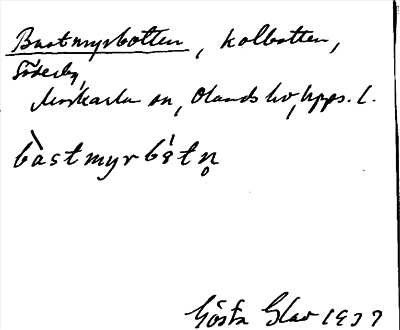 Bastmyrbotten, kolbotten,
Söderby,
Morkarla sn, Olands hd, Upps. l.
bàstmyrbåtn̥
Gösta Glav 1937